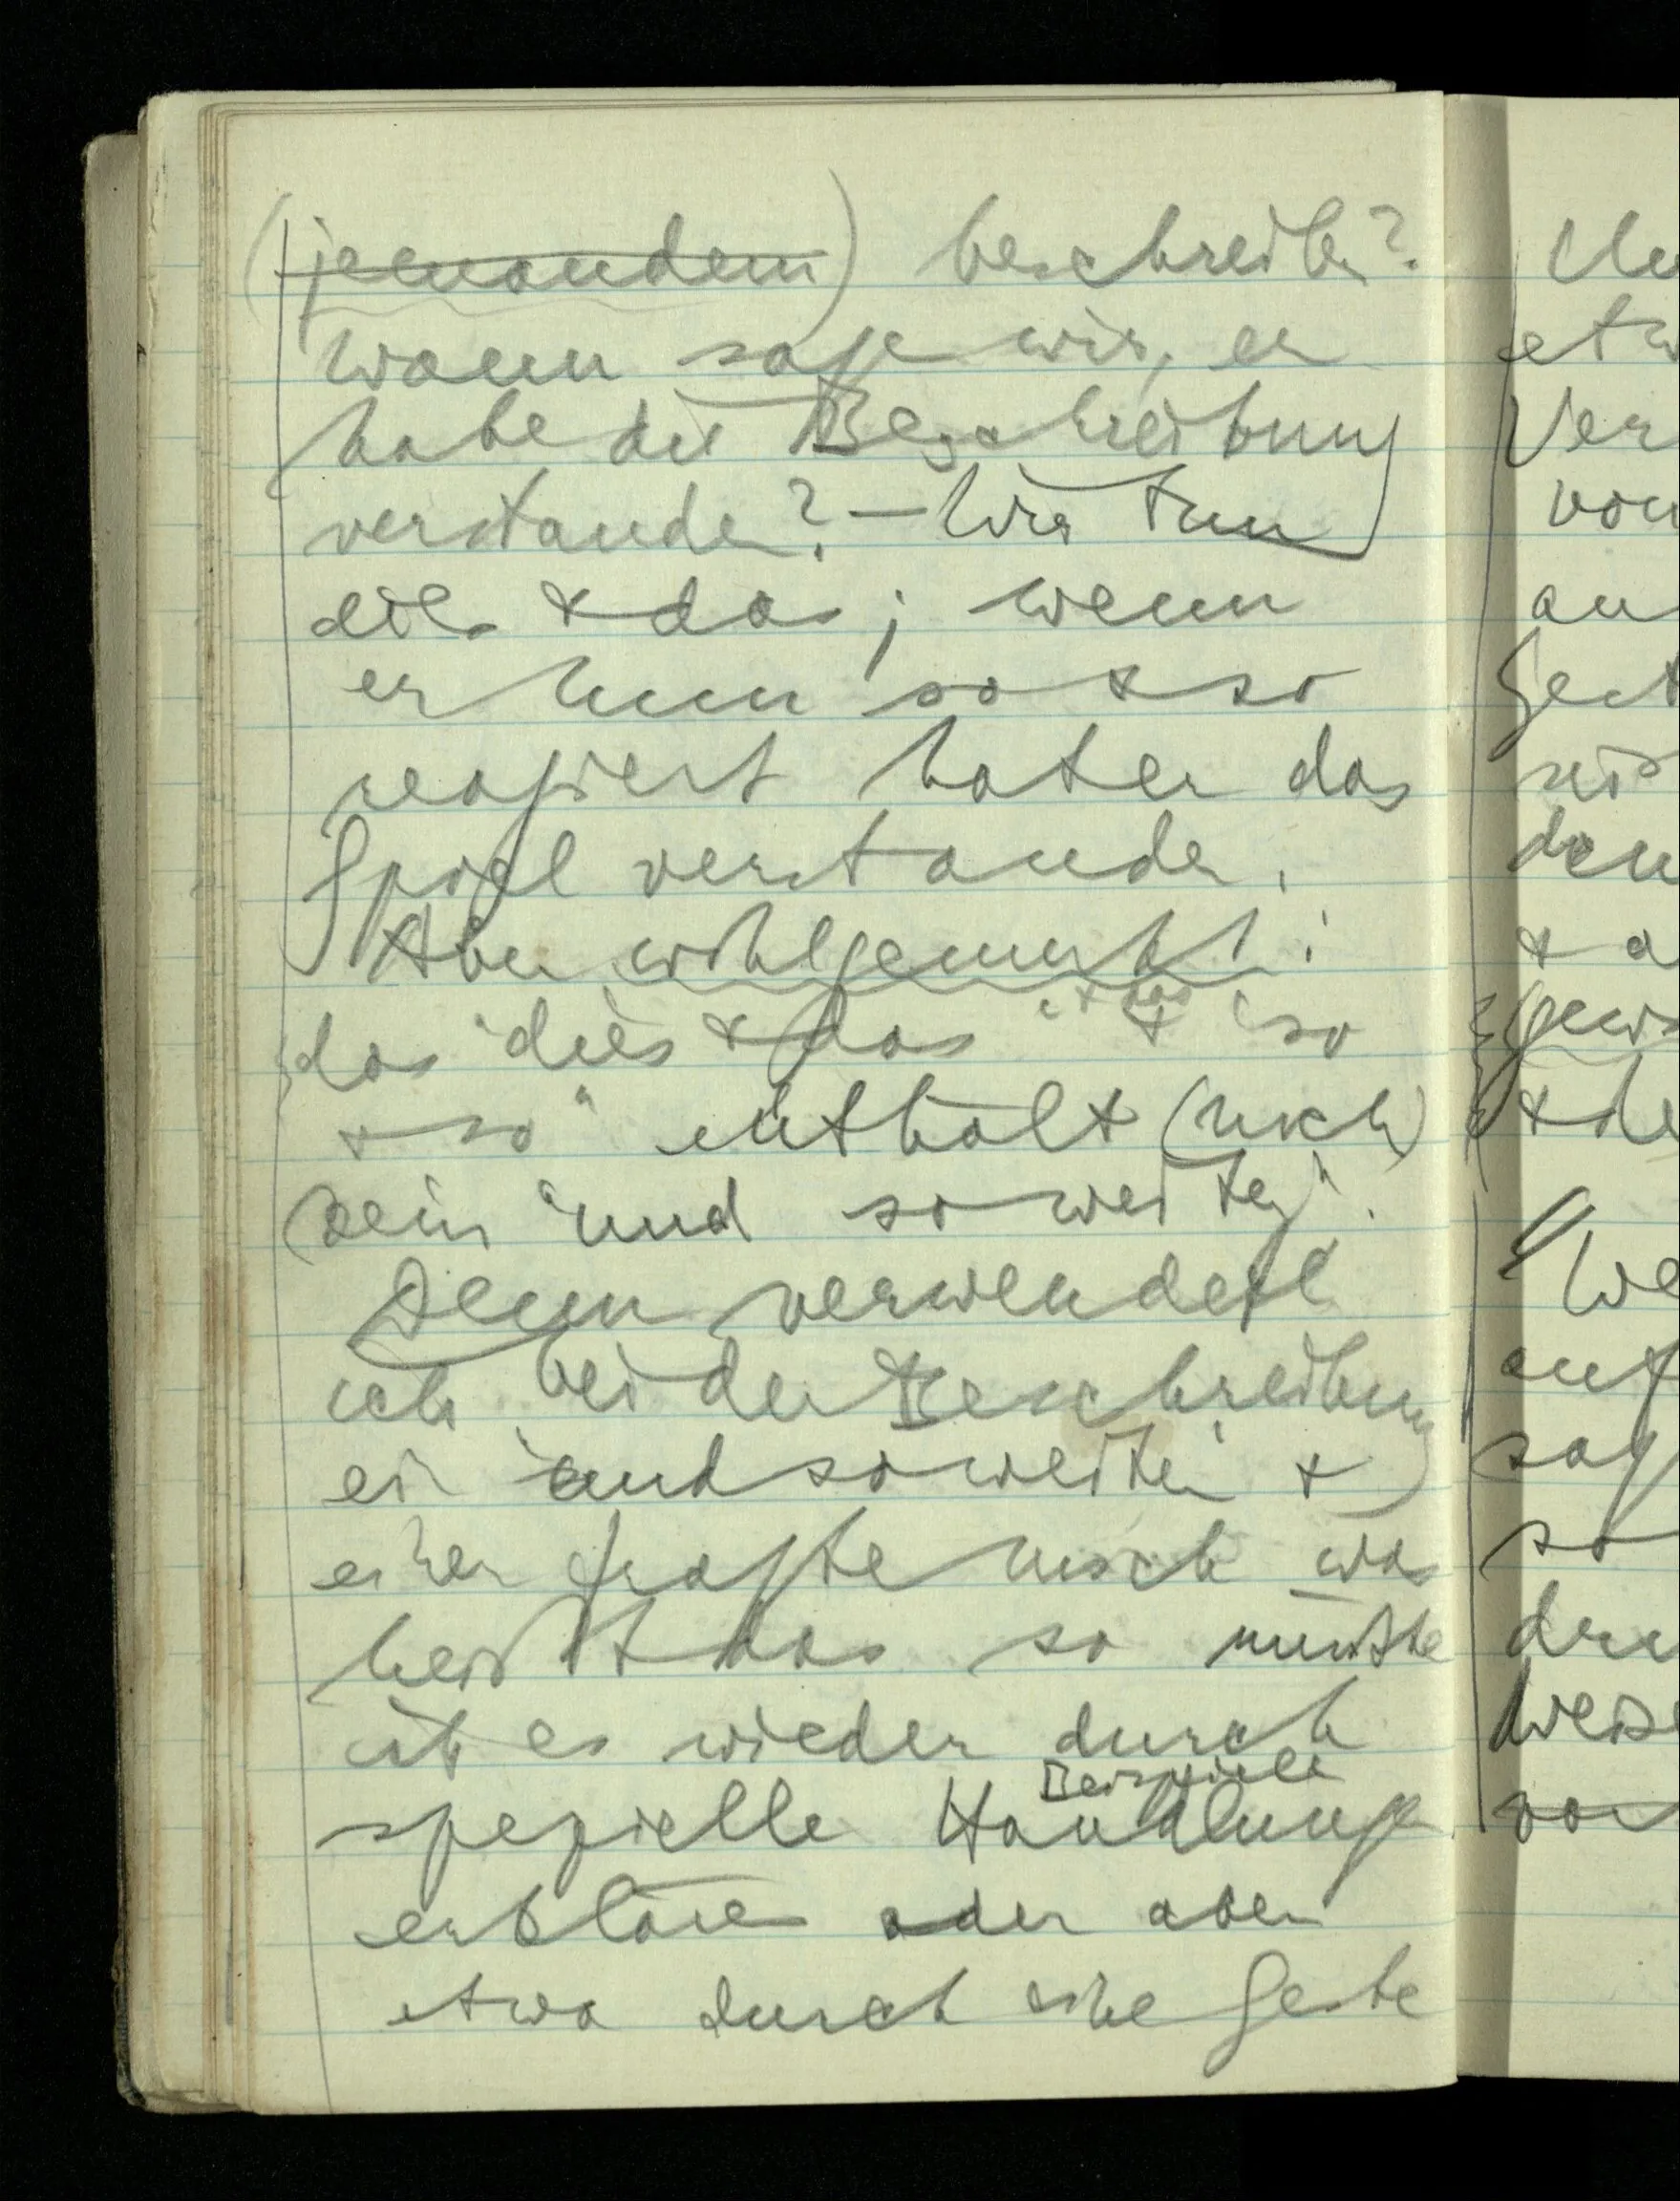 (jemandem) beschreiben?
Wann sagen wir, er
habe die Beschreibung
verstanden? — Wir tun
dies & das; wenn
er nun so & so
reagiert hat er das
Spiel verstanden.
Aber wohlgemerkt:
das "dies & das" & "so
& so" enthält (nicht)
kein "und so weiter".
Denn verwendete
ich bei der Beschreibung
ein "und so weiter" &
einer fragte mich was
heißt das so müßte
ich es wieder durch
Beispiele
spezielle Handlungen
erklären oder aber
etwa durch eine Geste